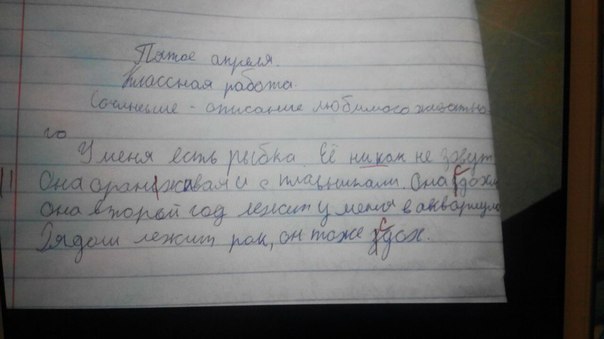 Пятое апреля.
Классная работа.
Сочинение - описание любимого животно-
го
У меня есть рыбка. Её никак не зовут
Она оранжевая и с плавниками. Она здохла
она второй год лежит у меня в аквариуме
Рядом лежит рак, он тоже здох.